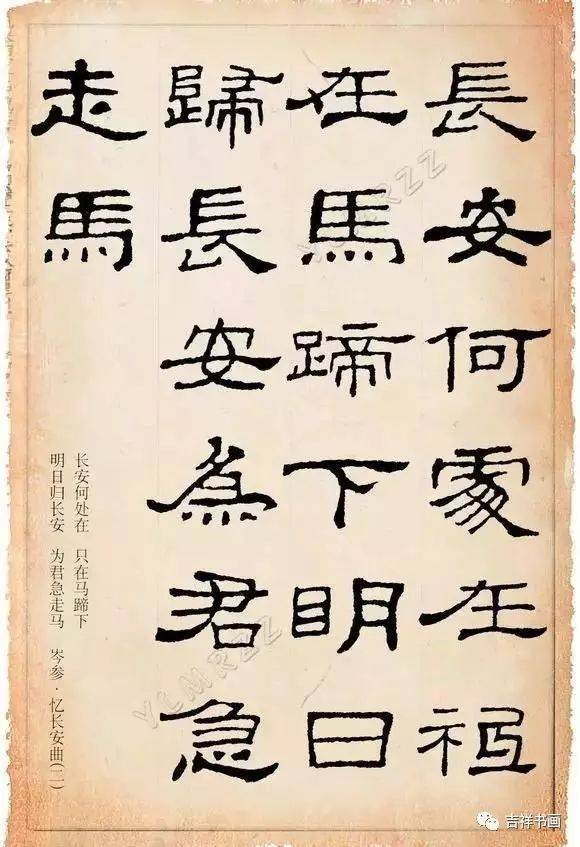 長安何處在祗
在馬蹄下明日
歸長安為君急
走馬
长安何处在　只在马蹄下
明日归长安　为君急走马　岑参·忆长安曲(二)
吉祥书画